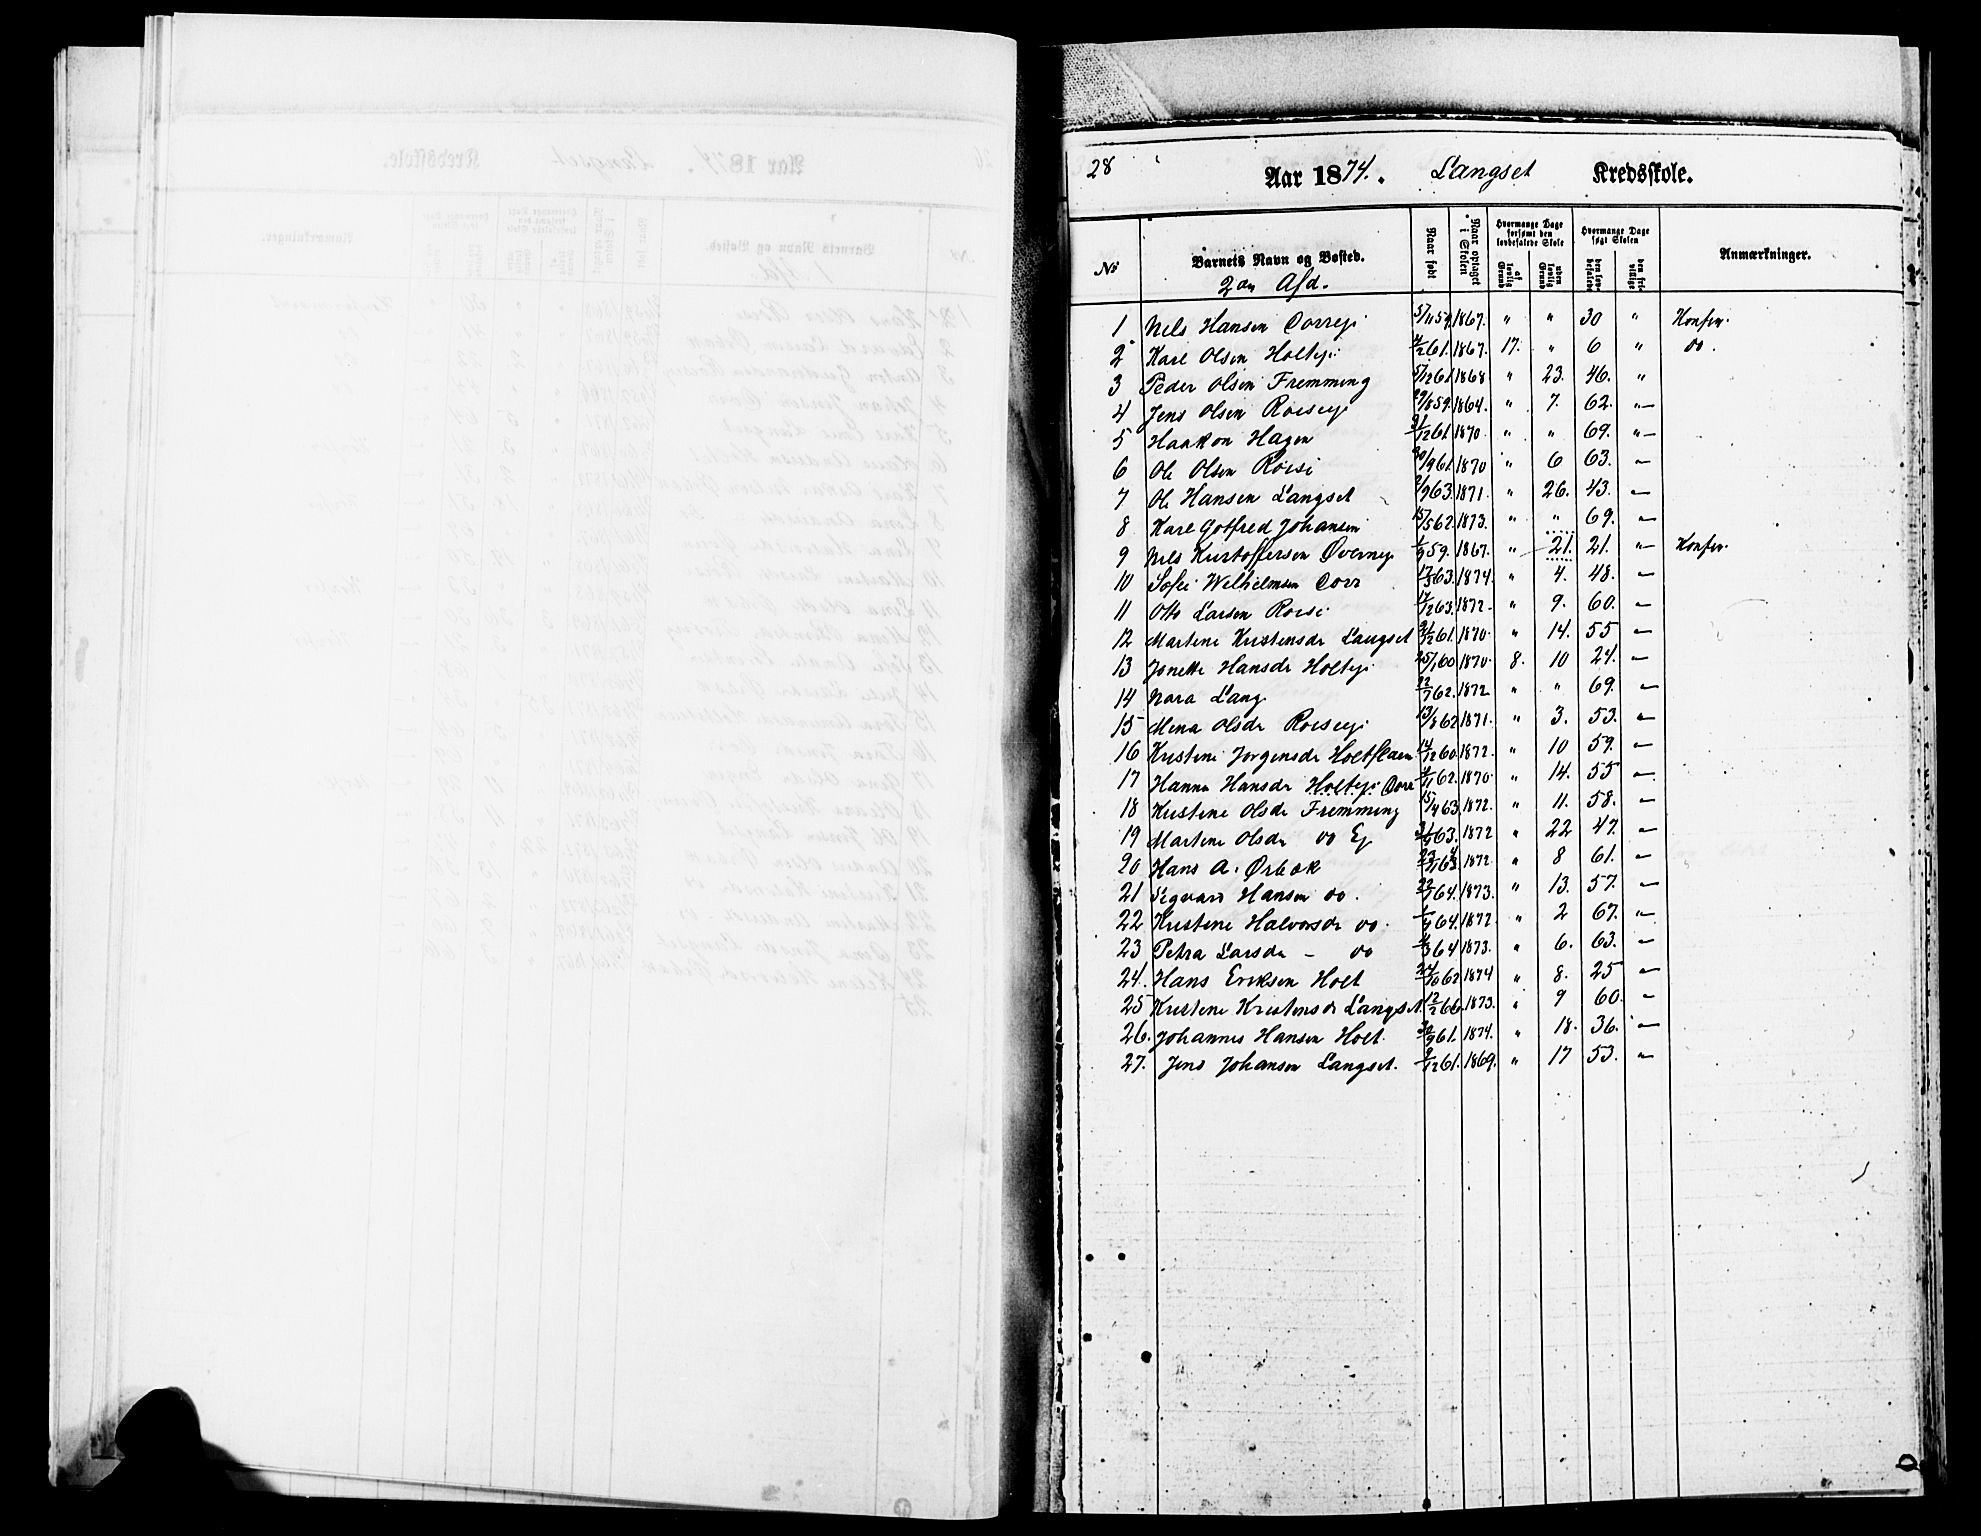 28
Aar 1874. Langset Kredsskole.
No Barnets Navn og Bosted. Naar født Naar optaget i Skolen Hvormange Dage forsømt den lovbefalede Skole af lovlig Grund uden lovlig Grund Hvormange Dage søgt Skolen den lovbefalede den frivillige Anmærkninger.
2den Afd.
1 Nels Hansen 5/11 59. 1867. " " 30 " Konfir.
2 Karl Olsen Holteje 61. 1867. 17. " 6 " do.
3 Peder Olsen Fremming 5/12 61 1868 " 23. 46. "
4 Jens Olsen 29/8 59. 1864. " 7. 62. "—
5 Haakon Hagen 31/12 61. 1870. " " 69. "—
6 Ole Olsen Roise 30/9 61 1870 " 6 63. "—
7 Ole Hansen Langset 2/9 63. 1871. " 26. 43. "—
8 Karl Gotfred Johansen 15/5 62. 1873. " " 69. "—
9 Nels Kristoffersen 59. 1867. " 21. 21. "— Konfir.
10 Sofie Wilhelmsen 17/3 63. 1874. " 4. 48. "—
11 Otto Larsen Roise 17/12 63. 1872. " 9. 60. "—
12 Martine Kristensdr Langset 31/12 61. 1870. " 14. 55 "—
13 Jonette Hansdr Holteje 25/1 60 1870. 8. 10 24. "—
14 Nara Lang 22/7 62. 1872 " " 69. "—
15 Mina Olsdr 13/8 62 1871. " 3. 53. "—
16 Kristine Jorgensdr 14/12 60. 1872. " 10 59. "—
17 Hanna Hansdr Holteje 62. 1870. " 14. 55 "—
18 Kristine Olsdr Fremming 15/4 63. 1872. " 11. 58. "—
19 Martine Olsdr do Ej 63. 1872 " 22 47. "—
20 Hans A. Ørbak 1872. " 8 61. "—
21 Sigvard Hansen do. 22/7 64. 1873. " 13. 57. "—
22 Kristine Halvorsdr do. 64. 1872. " 2 67. "—
23 Petra Larsdr - do 64 1873. " 6. 63. "—
24. Hans Eriksen Holt 24/10 62 1874 " 8. 25 "—
25 Kristine Kristensdr Langset 12/2 66. 1873. " 9 60. "—
26. Johannes Hansen Holt. 30/9 61. 1874. " 18. 36. "—
27. Jens Johansen Langset. 61. 1869. " 17 53. "—